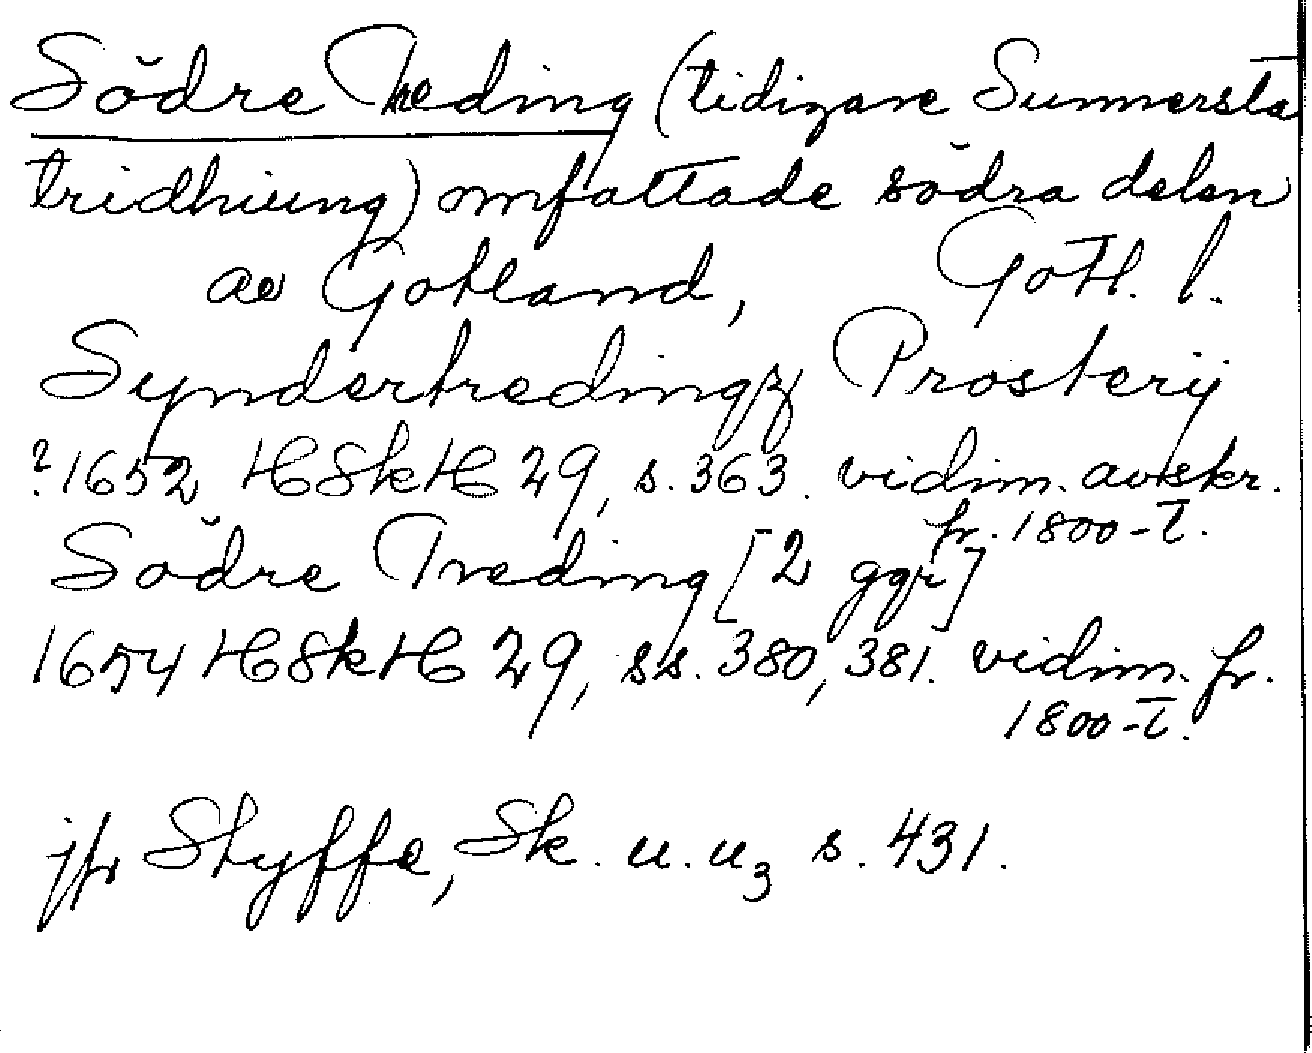 Södre Treding (tidigare Sunnersta
tridhiung) omfattade södra delen
av Gotland, Gotl. l.
Syndertredingz Prosterij
?1652 HSkH 29, s. 363. vidim. avskr.
fr. 1800-t.
Södre Treding [2 ggr]
1654 HSkH 29, ss. 380, 381. vidim. fr.
1800-t.
jfr Styffe, Sk. u. u₃ s. 431.